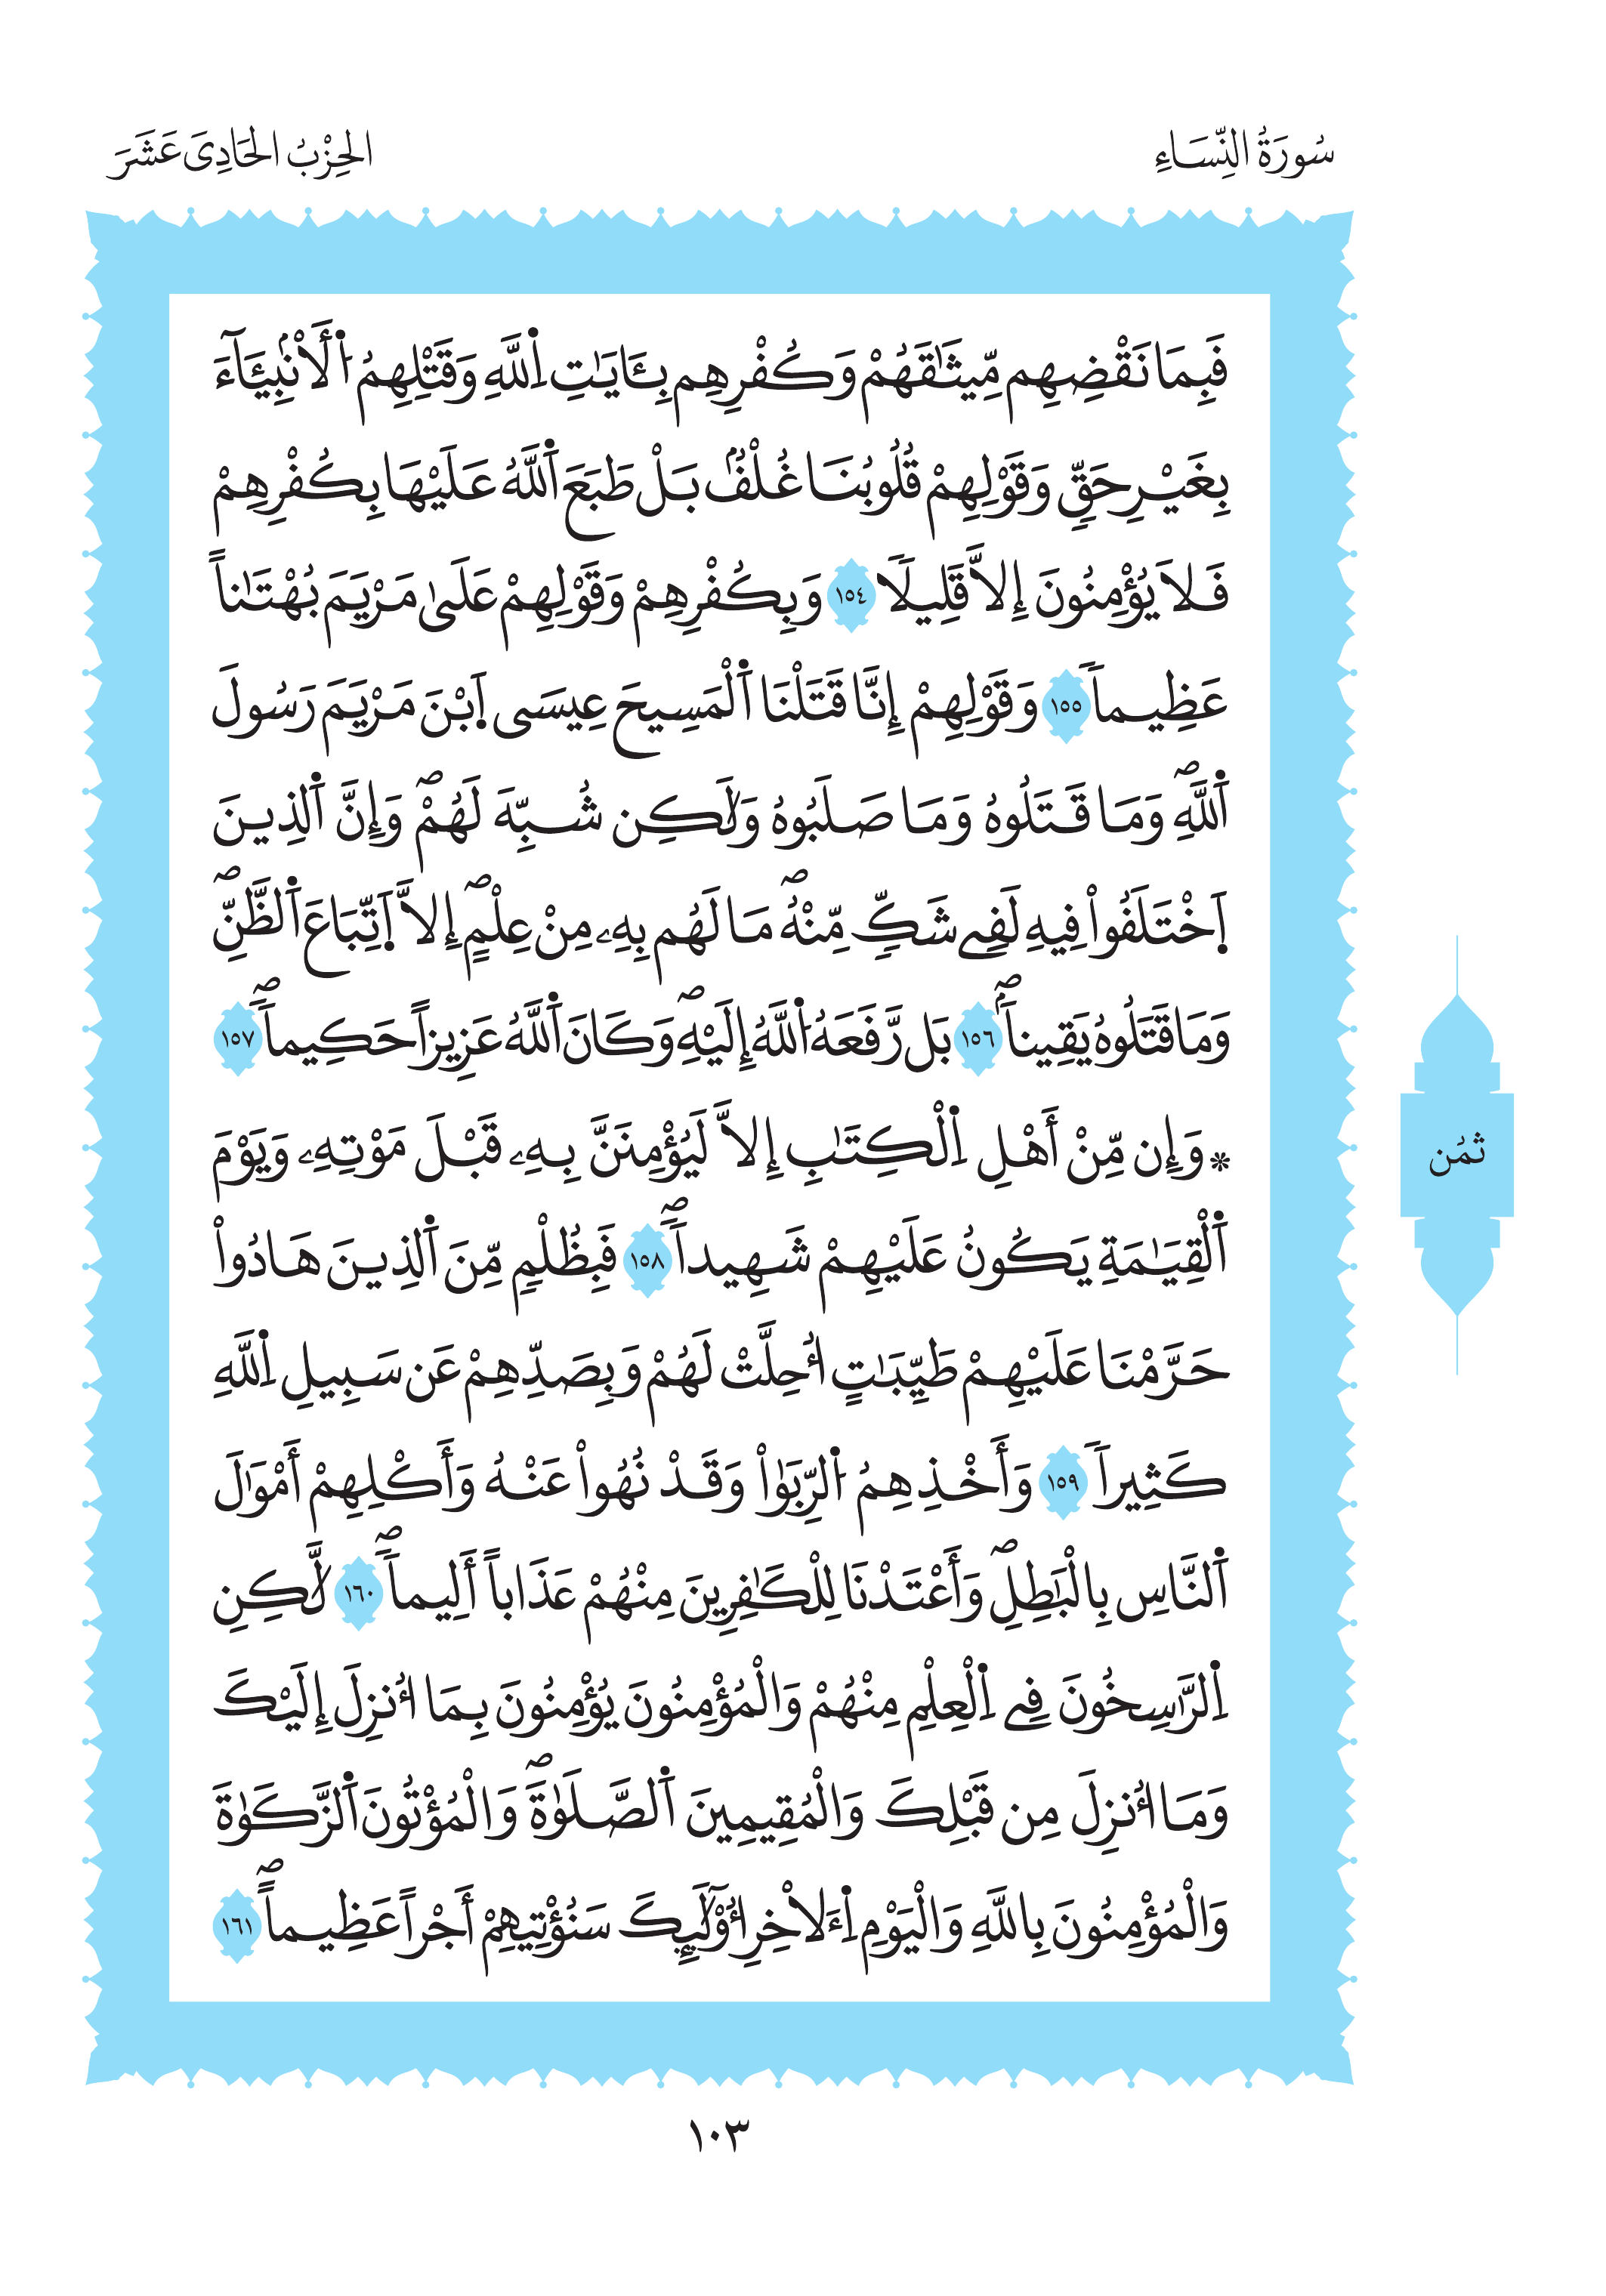 سُورَةُ النِّسَاءِ
الحِزْبُ الحَادِيَ عَشَرَ
فَبِمَا نَقْضِهِم مِّيثَٰقَهُمْ وَكُفْرِهِم بِـَٔايَٰتِ اِ۬للَّهِ وَقَتْلِهِمُ اُ۬لَانۢبِيَـَٔآءَ
بِغَيْرِ حَقٍّ وَقَوْلِهِمْ قُلُوبُنَا غُلْفُۢ بَلْ طَبَعَ اَ۬للَّهُ عَلَيْهَا بِكُفْرِهِمْ
فَلَا يُؤْمِنُونَ إِلَّا قَلِيلٗا ١٥٤ وَبِكُفْرِهِمْ وَقَوْلِهِمْ عَلَىٰ مَرْيَمَ بُهْتَٰناً
عَظِيماٗ ١٥٥ وَقَوْلِهِمْ إِنَّا قَتَلْنَا اَ۬لْمَسِيحَ عِيسَى اَ۪بْنَ مَرْيَمَ رَسُولَ
اَ۬للَّهِۖ وَمَا قَتَلُوهُ وَمَا صَلَبُوهُ وَلَٰكِن شُبِّهَ لَهُمْۖ وَإِنَّ اَ۬لذِينَ
اَ۪خْتَلَفُواْ فِيهِ لَفِے شَكٍّ مِّنْهُۖ مَا لَهُم بِهِۦ مِنْ عِلْمٍۖ إِلَّا اَ۪تِّبَاعَ اَ۬لظَّنِّۖ
وَمَا قَتَلُوهُ يَقِيناَۢۖ ١٥٦ بَل رَّفَعَهُ اُ۬للَّهُ إِلَيْهِۖ وَكَانَ اَ۬للَّهُ عَزِيزاً حَكِيماٗۖ ١٥٧
۞وَإِن مِّنْ أَهْلِ اِ۬لْكِتَٰبِ إِلَّا لَيُؤْمِنَنَّ بِهِۦ قَبْلَ مَوْتِهِۦ وَيَوْمَ
اَ۬لْقِيَٰمَةِ يَكُونُ عَلَيْهِمْ شَهِيداٗۖ ١٥٨ فَبِظُلْمٍ مِّنَ اَ۬لذِينَ هَادُواْ
حَرَّمْنَا عَلَيْهِمْ طَيِّبَٰتٍ ا۟حِلَّتْ لَهُمْ وَبِصَدِّهِمْ عَن سَبِيلِ اِ۬للَّهِ
كَثِيراٗ ١٥٩ وَأَخْذِهِمُ اُ۬لرِّبَوٰاْ وَقَدْ نُهُواْ عَنْهُ وَأَكْلِهِمْ أَمْوَٰلَ
اَ۬لنَّاسِ بِالْبَٰطِلِۖ وَأَعْتَدْنَا لِلْكَٰفِرِينَ مِنْهُمْ عَذَاباً أَلِيماٗۖ ١٦٠ لَّٰكِنِ
اِ۬لرَّٰسِخُونَ فِے اِ۬لْعِلْمِ مِنْهُمْ وَالْمُؤْمِنُونَ يُؤْمِنُونَ بِمَا أُنزِلَ إِلَيْكَ
وَمَا أُنزِلَ مِن قَبْلِكَ وَالْمُقِيمِينَ اَ۬لصَّلَوٰةَۖ وَالْمُؤْتُونَ اَ۬لزَّكَوٰةَ
وَالْمُؤْمِنُونَ بِاللَّهِ وَالْيَوْمِ اِ۬لَاخِرِ أُوْلَٰٓئِكَ سَنُؤْتِيهِمْ أَجْراً عَظِيماًۖ ١٦١
ثمُن
١٠٣